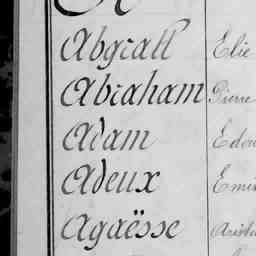 Abgrall Elie
Abraham Pierre
Adam
Adeux
Agaësse